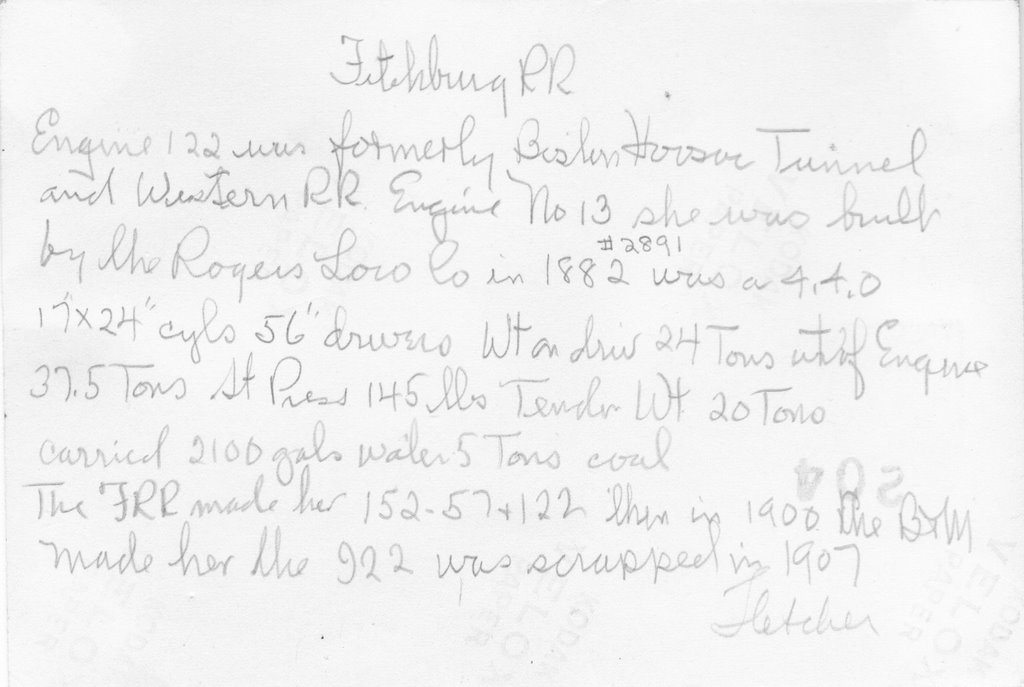 Fitchburg RR
Engine 122 was formerly Boston Hoosac Tunnel
and Western RR. Engine No 13 she was built
by the Rogers Loco Co in 1882 #2891 was a 4.4.0
17"x24" cyls 56" drivers Wt on driv 24 Tons wt of Engine
37.5 Tons St Press 145 lbs Tender Wt 20 Tons
carried 2100 gals water 5 Tons coal
The FRR made her 152-57+122 then in 1900 the B+M
made her the 922 was scrapped in 1907
Fletcher
504
KODAK
VELOX
PAPER